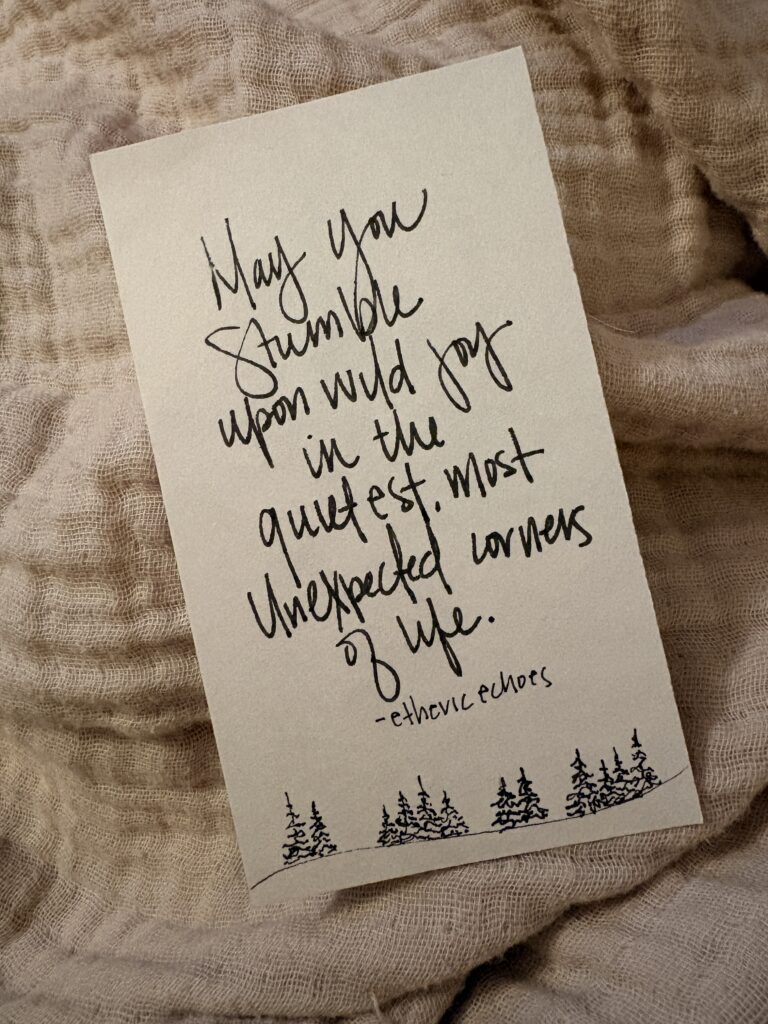 May you
Stumble
upon wild joy
in the
quietest, most
Unexpected corners
of life.
-etheric echoes